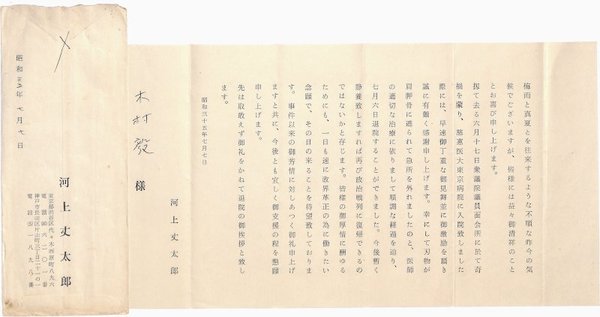 梅雨と真夏とを往来するような不順な昨今の気
候でございますが、皆様には益々御清祥のこと
とお喜び申し上げます。
扨て去る六月十七日衆議院議員面会所に於て奇
禍を蒙り、慈恵医大東京病院に入院致しました
際には、早速御丁重な御見舞並に御激励を頂き
誠に有難く感謝申し上げます。幸にして刃物が
肩胛骨に遮られて急所を外れましたのと、医師
の適切な治療に依りまして順調な経過を辿り、
七月六日退院することができました。今後暫く
静養致しますれば再び政治戦列に復帰できるの
ではないかと存じます。皆様の御厚情に酬ゆる
ためにも、一日も速に政界革正の為に働きたい
念願で、その日の来ることを待望致しておりま
す。事件以来の御芳情に対しあつく御礼申上げ
ますと共に、今後とも宜しく御支援の程を懇願
申し上げます。
先は取敢えず御礼をかねて退院の御挨拶と致し
ます。
昭和三十五年七月七日
河上丈太郎
木村毅様
昭和三五年七月七日
河上丈太郎